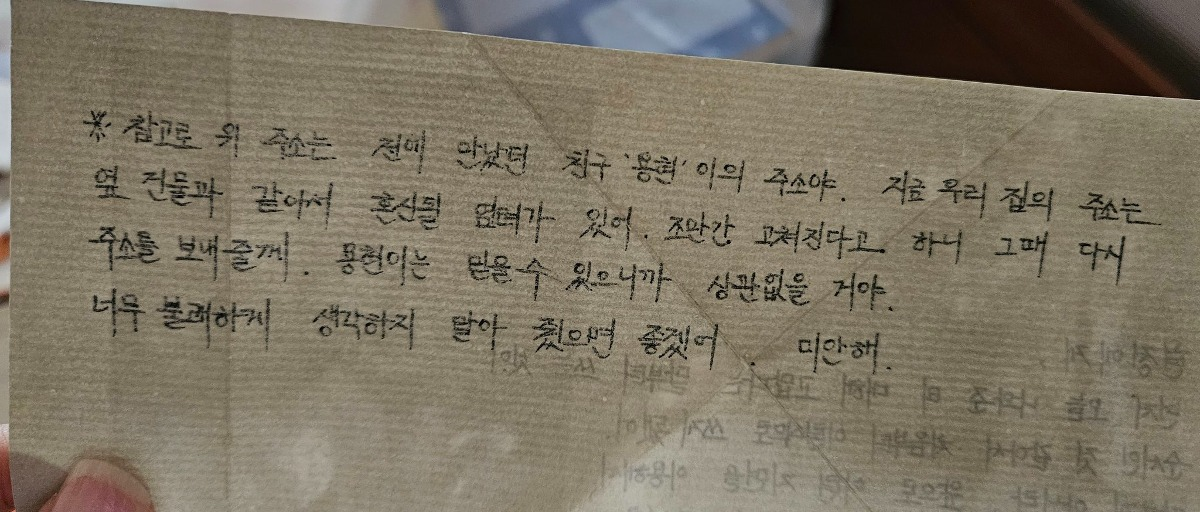 ※ 참고로 위 주소는 전에 만났던 친구 '용현'이의 주소야. 지금 우리 집의 주소는
옆 건물과 같아서 혼신될 염려가 있어. 조만간 고쳐진다고 하니 그때 다시
주소를 보내줄께. 용현이는 믿을 수 있으니까 상관없을 거야.
너무 불쾌하게 생각하지 말아 줬으면 좋겠어. 미안해.